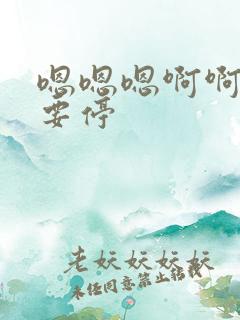 嗯嗯嗯啊啊
要停
老妖妖妖妖
未经同意禁止转载